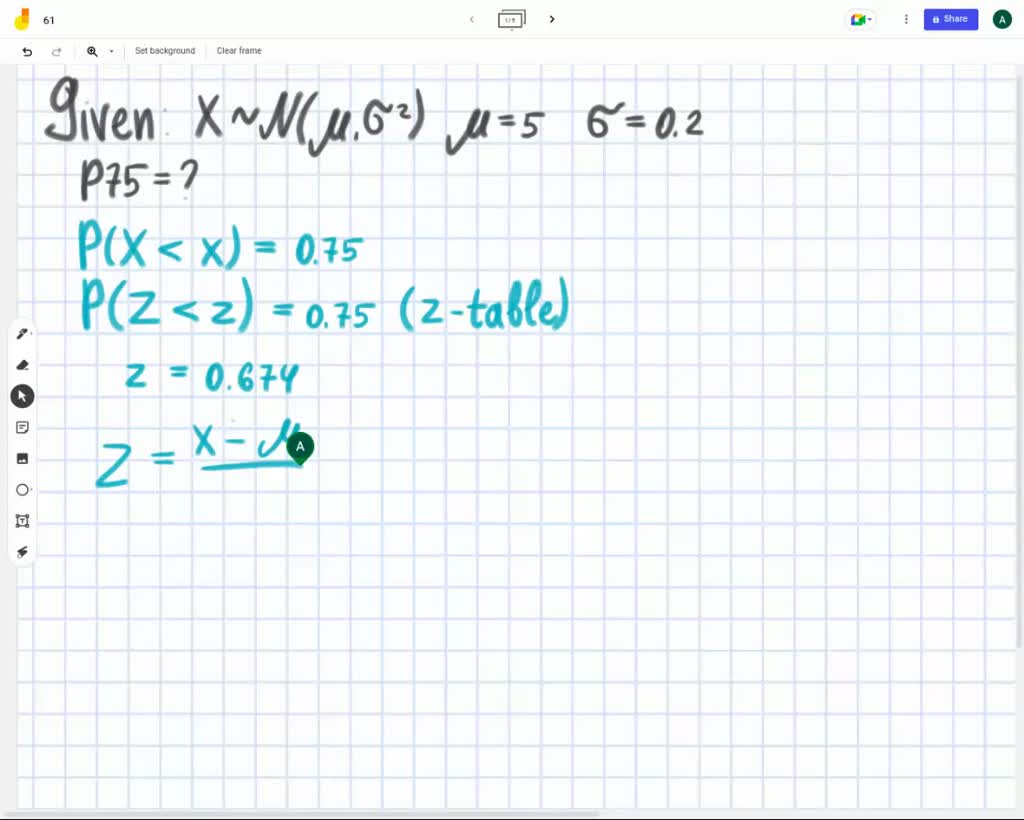 61
1/5
Share
A
Set background
Clear frame
Given: X ~ N(μ, σ²) μ = 5 σ = 0.2
P75 = ?
P(X < x) = 0.75
P(Z < z) = 0.75 (z-table)
z = 0.674
Z = X - μ
A